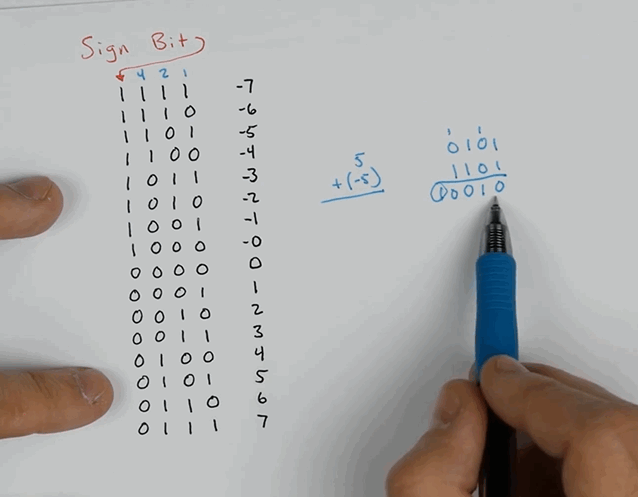 Sign Bit
4 2 1
1 1 1 1 -7
1 1 1 0 -6
1 1 0 1 -5
1 1 0 0 -4
1 0 1 1 -3
1 0 1 0 -2
1 0 0 1 -1
1 0 0 0 -0
0 0 0 0 0
0 0 0 1 1
0 0 1 0 2
0 0 1 1 3
0 1 0 0 4
0 1 0 1 5
0 1 1 0 6
0 1 1 1 7
5
+(-5)
1 1
0101
1101
10010